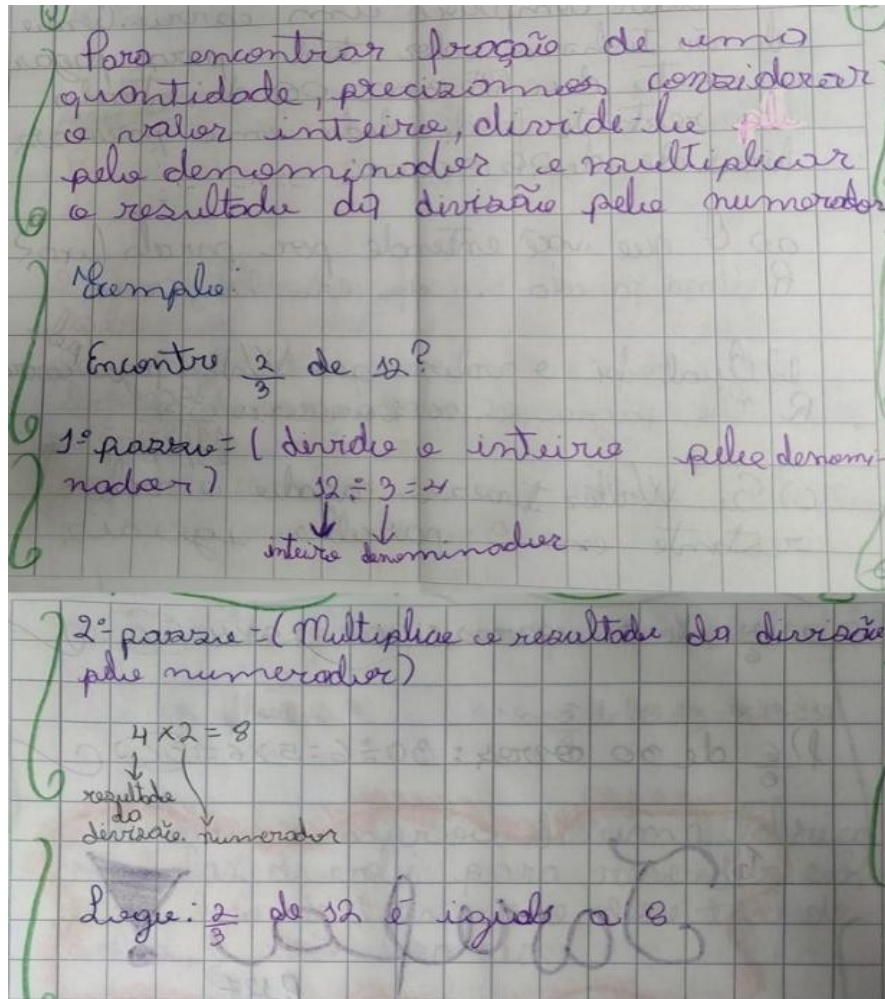 Para encontrar fração de uma
quantidade, precisamos considerar
o valor inteiro, divide-lo
pelo denominador e multiplicar
o resultado da divisão pelo numerador
Exemplo:
Encontre 2/3 de 12?
1º passo = (divida o inteiro pelo denomi-
nador) 12 ÷ 3 = 4
inteiro denominador
2º passo = (Multiplica o resultado da divisão
pelo numerador)
4 × 2 = 8
resultado
da
divisão. numerador
Logo: 2/3 de 12 é igual a 8